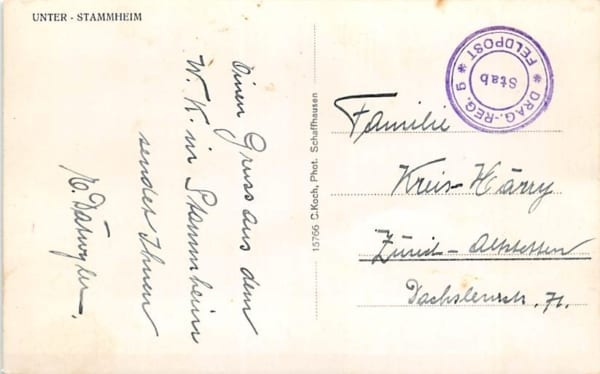 UNTER - STAMMHEIM
Einen Gruss aus dem
W.K. in Stammheim
sendet Ihnen
Dätwyler.
15766 C.Koch, Phot. Schaffhausen
* DRAG.-REG. 9 * FELDPOST
Stab
Familie
Kreis-Härry
Zürich-Altstetten
Dachslernstr. 71.